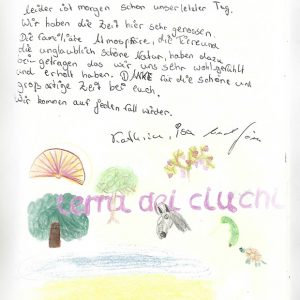 leider ist morgen schon unser letzter Tag.
Wir haben die Zeit hier sehr genossen.
Die familiäre Atmosphäre, die Tiere und
die unglaublich schöne Natur, haben dazu
beigetragen das wir uns sehr wohlgefühlt
und erholt haben. DANKE für die schöne und
großartige Zeit bei euch.
Wir kommen auf jeden Fall wieder.
Kathrin, Isa und
terra dei ciuchi